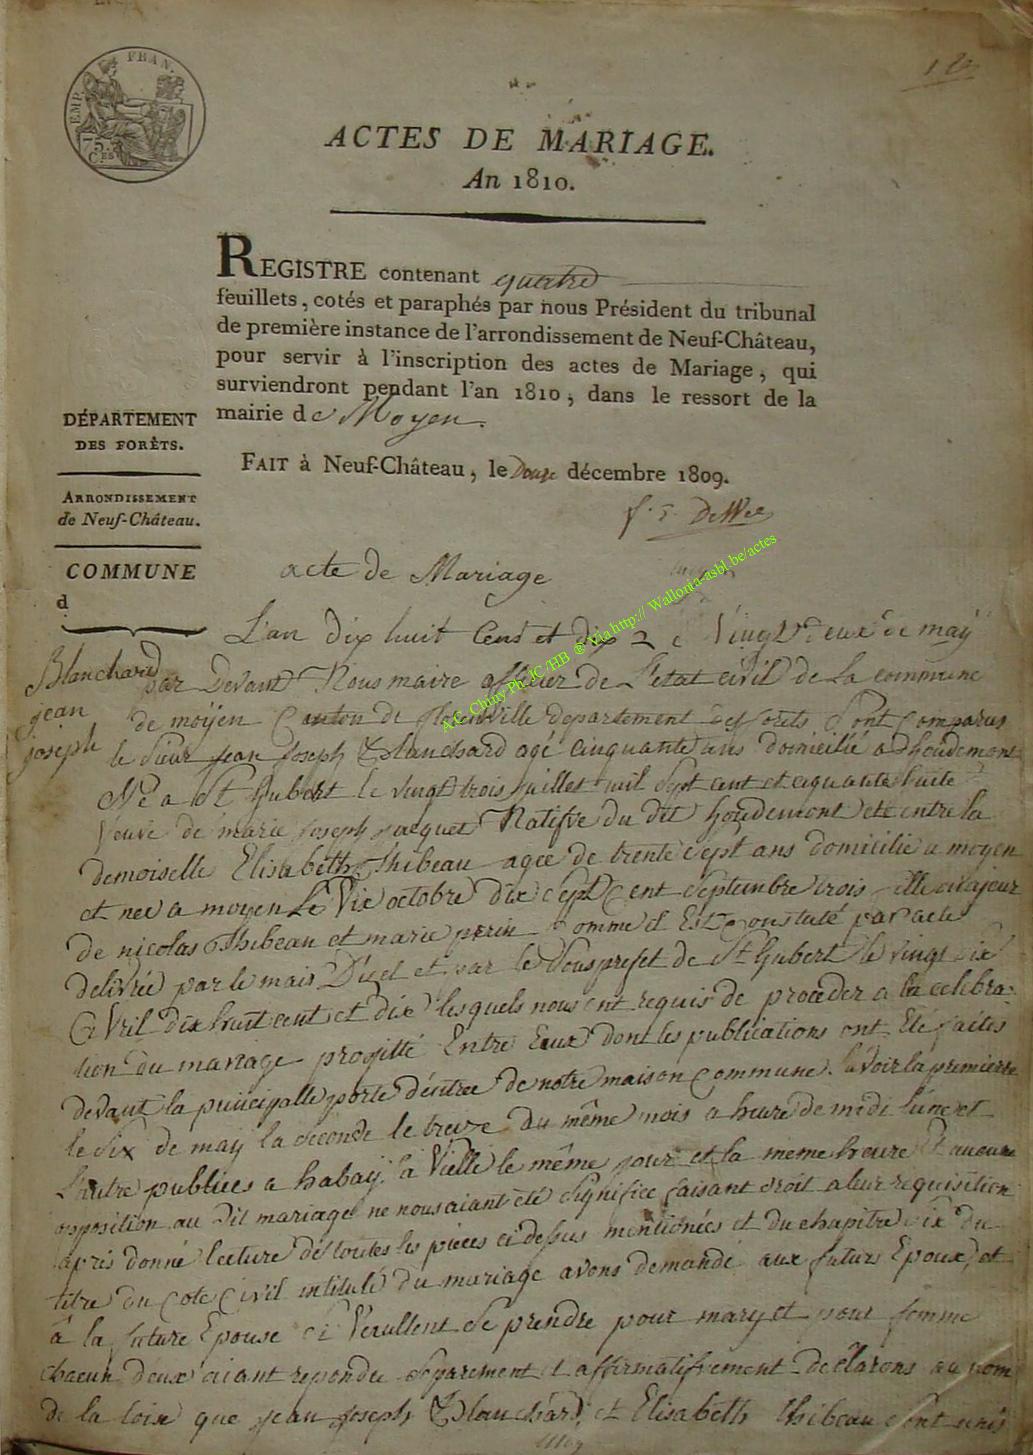 EMP. FRAN.
75.
Ces
ACTES DE MARIAGE.
An 1810.
REGISTRE contenant quatre
feuillets, cotés et paraphés par nous Président du tribunal
de première instance de l'arrondissement de Neuf-Château,
pour servir à l'inscription des actes de Mariage, qui
surviendront pendant l'an 1810, dans le ressort de la
mairie de Moyen.
FAIT à Neuf-Château, le Douze décembre 1809.
DÉPARTEMENT
DES FORÊTS.
ARRONDISSEMENT
de Neuf-Château.
COMMUNE
d
A.C. Chiny Ph. JC /HB ® Via http:// Wallonia-asbl.be/actes
Blanchard
jean
joseph
acte de Mariage
L'an Dix huit Cent et dix le Vingt deux de maÿ
par Devant Nous maire officier de L'etat civil de la commune
de moÿen Canton de florenville departement des forets Sont Comparus
le Sieur jean joseph Blanchard agé cinquante ans domicilié a houdemont
Né a St hubert le vingt trois juillet mil Sept cent et ciquante huite
Veuve de marie joseph jacquet Natifve du dit houdemont et entre la
demoiselle Elisabeth Thibeau agée de trente Sept ans domicilié a moyen
et née a moyen Le Vix octobre dix Sept Cent Septembre trois fille majeur
de nicolas Thibeau et marie perin Comme il Est Constaté par acte
delivrée par le mais et par le Sous prefet de St hubert le vingt Six
aVril dix huit cent et dix lesquels nous ont requis de proceder a la celebra-
tion du mariage projetté Entre Eux dont les publications ont Eté faites
devant la principalle porte d'entrée de notre maison Commune. Savoir la premiere
le Six de maÿ la Seconde le treize du même mois a heure de midi l'une et
l'autre publiées a habaÿ la Vielle le même jour et la meme heure Et aucune
opposition au Dit mariage ne nous aiant été Signifiée faisant droit a leur requisition
après donné lecture de toutes les pièces ci dessus mentionées et du chapitre ix du
titre du Code Civil intitulé du mariage avons demandé aux futurs Epoux et
à la future Epouse Si Veullent Se prendre pour mary et pour femme
chacun d'eux aiant repondu Separement et affirmatifvement declarons au nom
de la loix que jean joseph Blanchard et Elisabeth thibeau Sont unis